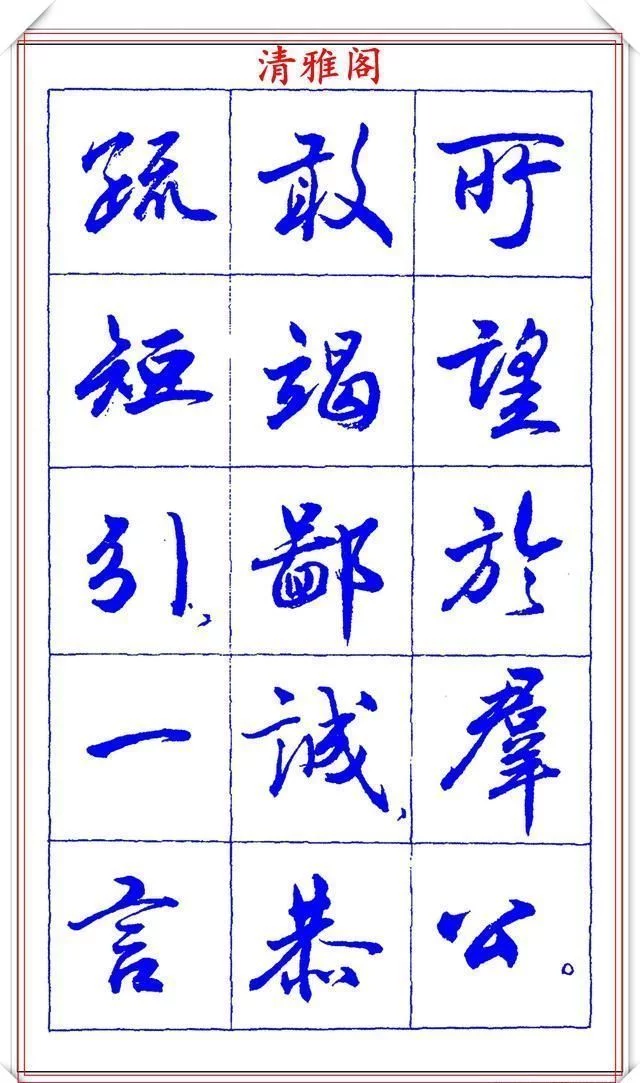 清雅阁
所望於羣公。
敢竭鄙誠、恭
疏短引、一言